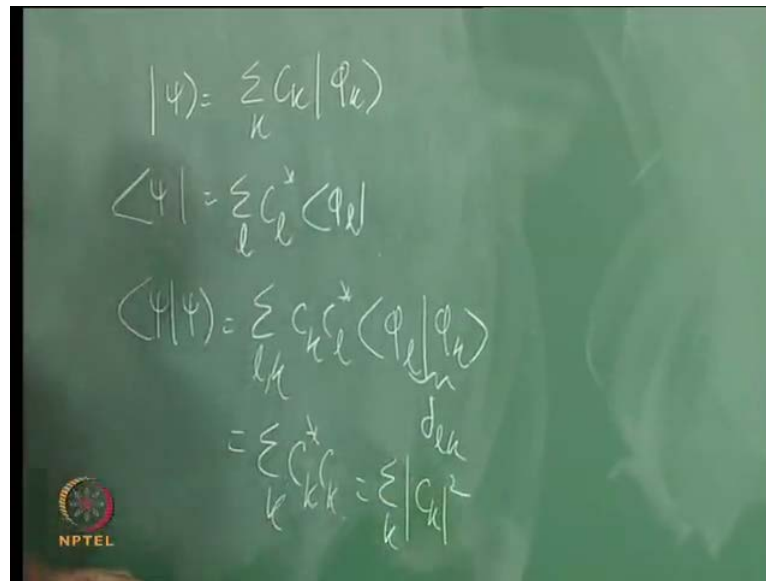 |ψ⟩ = Σ_k C_k |φ_k⟩
⟨ψ| = Σ_l C_l^* ⟨φ_l|
⟨ψ|ψ⟩ = Σ_{l,k} C_k C_l^* ⟨φ_l|φ_k⟩
δ_{lk}
= Σ_k C_k^* C_k = Σ_k |C_k|^2
NPTEL